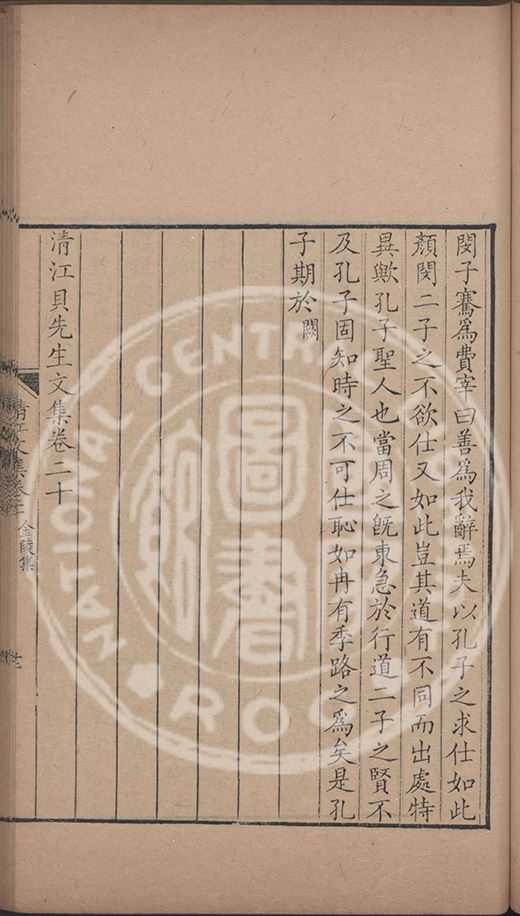 閔子騫爲費宰曰善爲我辭焉夫以孔子之求仕如此
顏閔二子之不欲仕又如此豈其道有不同而出處特
異歟孔子聖人也當周之旣東急於行道二子之賢不
及孔子固知時之不可仕恥如冉有季路之爲矣是孔
子期於闕
清江貝先生文集卷二十
清江文集卷二 金陵集
圖書
NATIONAL CENTRAL
ROC